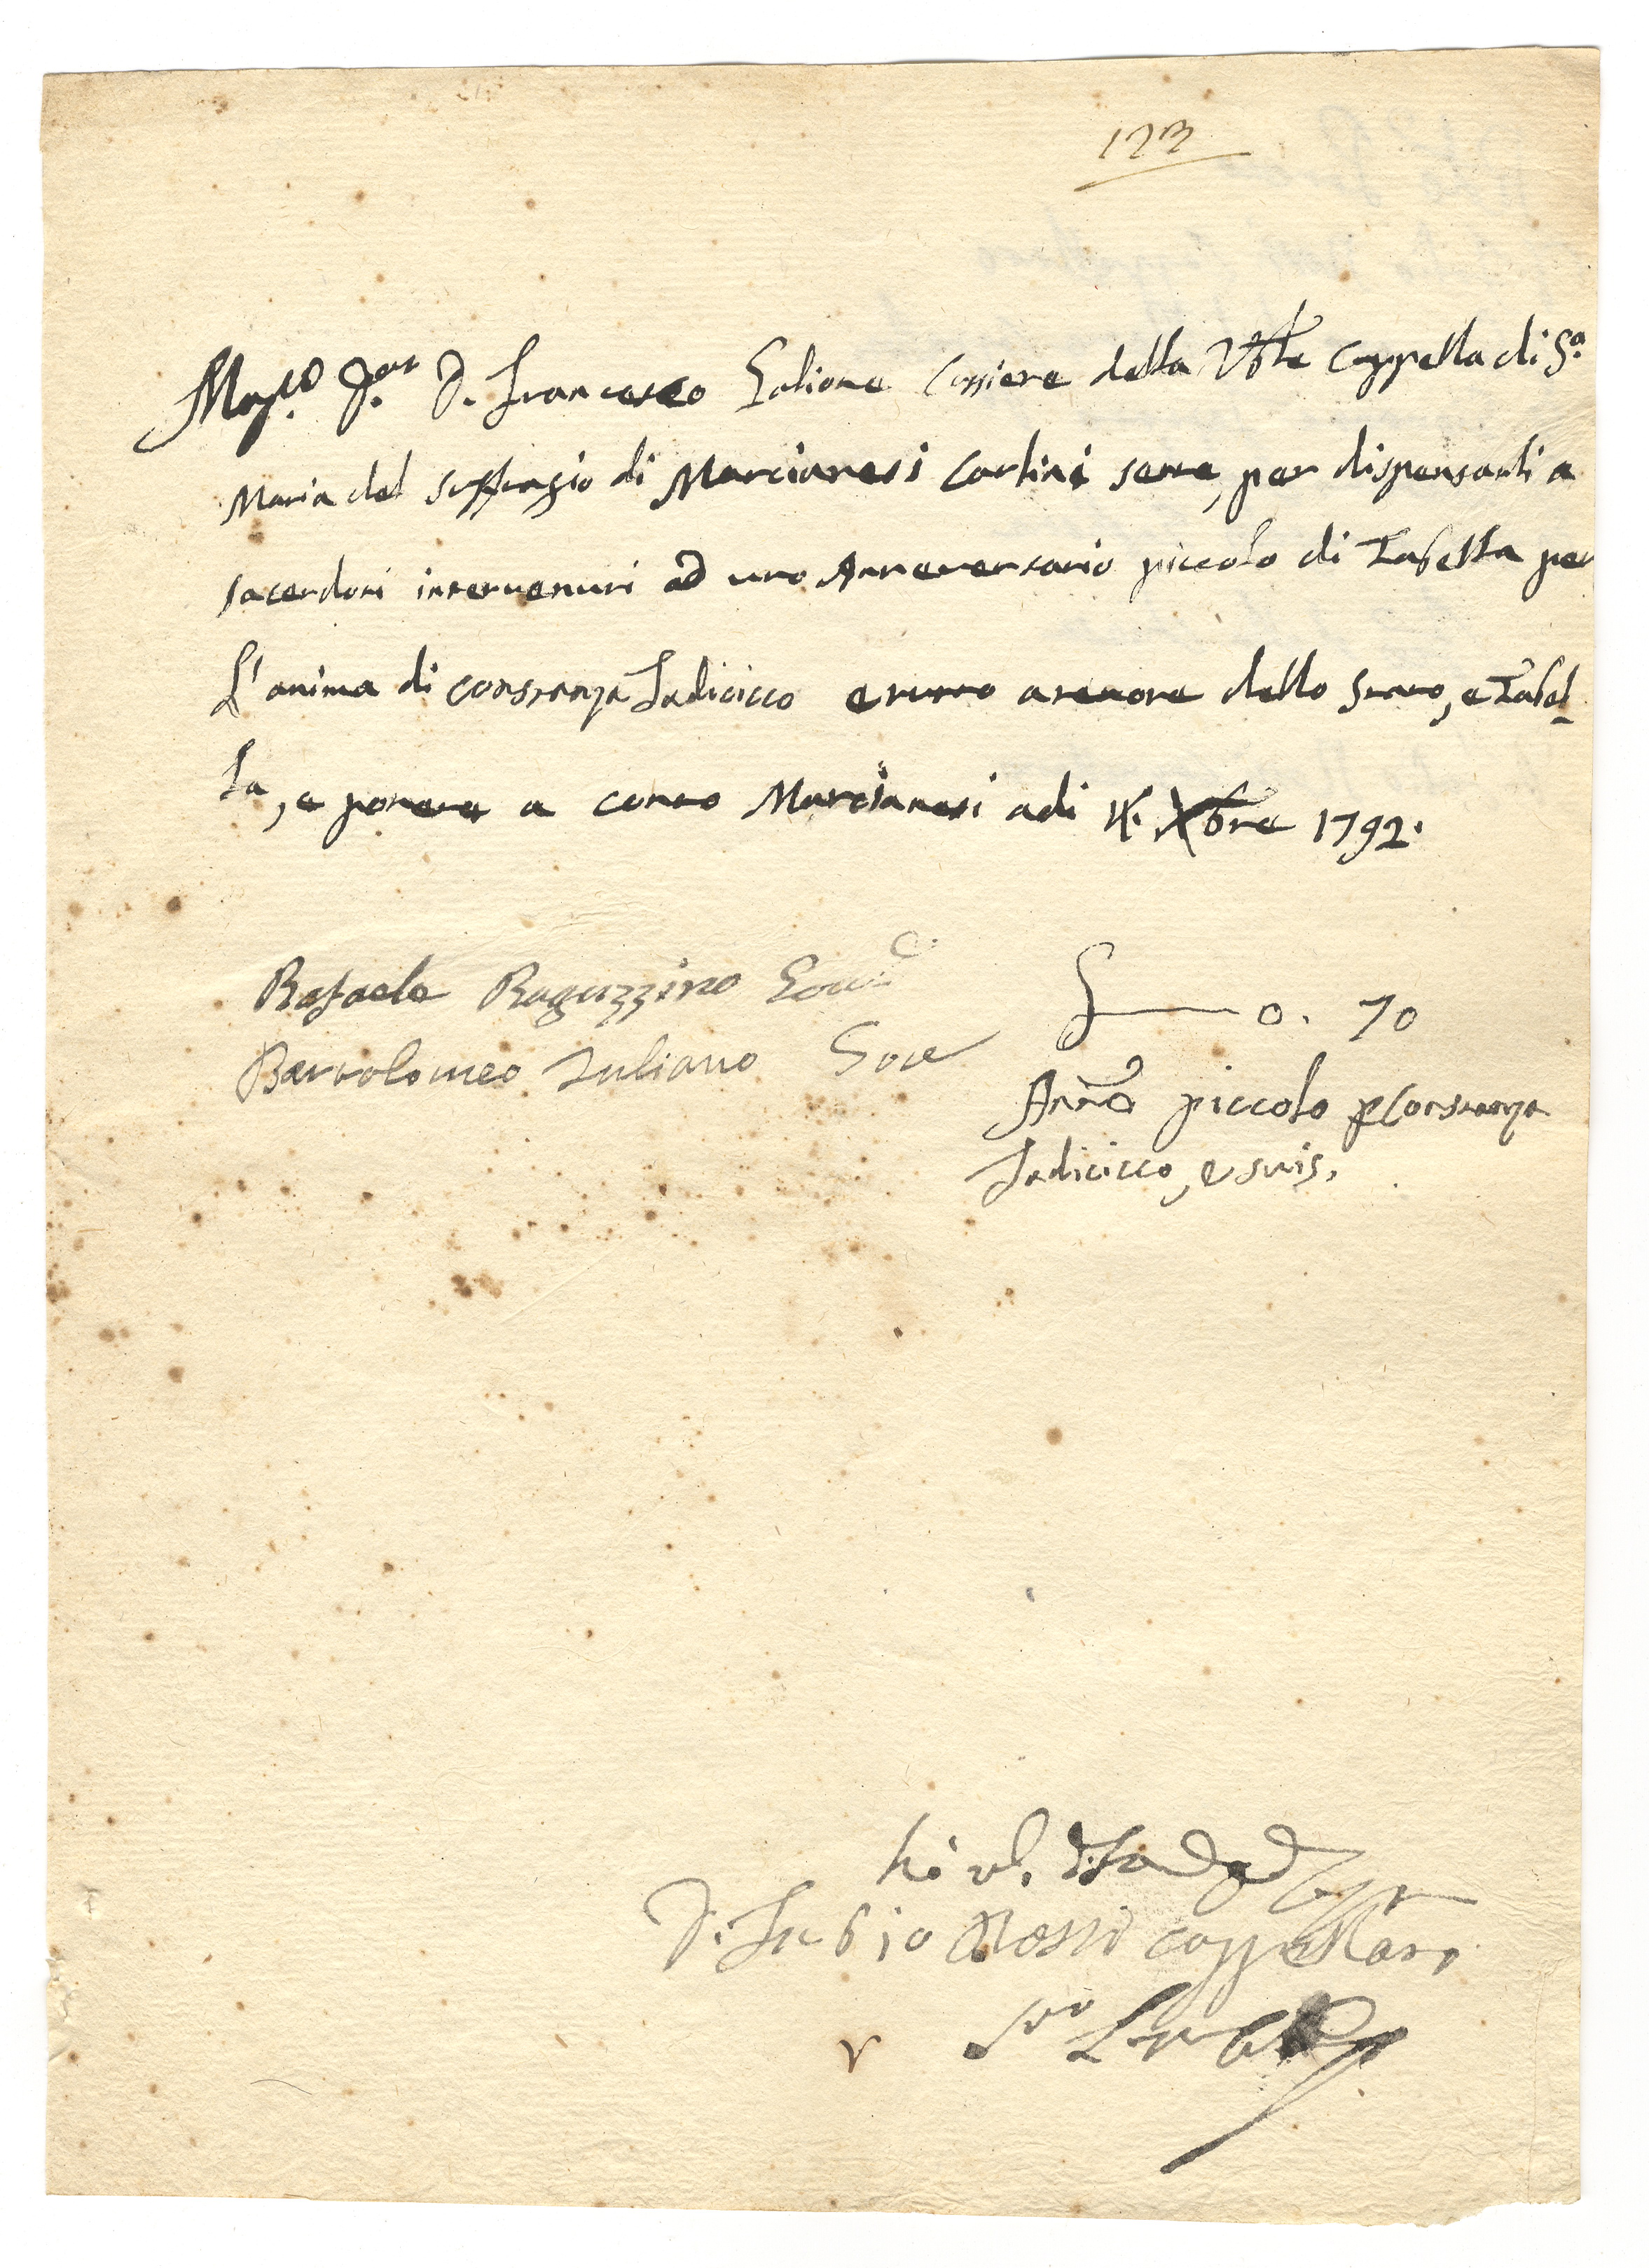 123
Mag.co D.or D. Francesco Galione Cassiere della Vble Cappella di S.a
Maria del suffragio di Marcianesi Carlini sette, per dispensarli a
sacerdoti intervenuti ad uno Anneversario piccolo di Tabella per
L'anima di Constanza Iadicicco e tutto a tenore dello Stato, e Tabel-
la, e ponere a conto Marcianesi adi Xbre 1792.
Rafaele Raguzzino Gov.e
Bartolomeo Iuliano Gove
0. 70
Ann.o piccolo p Constanza
Iadicicco, e suis.
D. Fabio Rossi cappellano